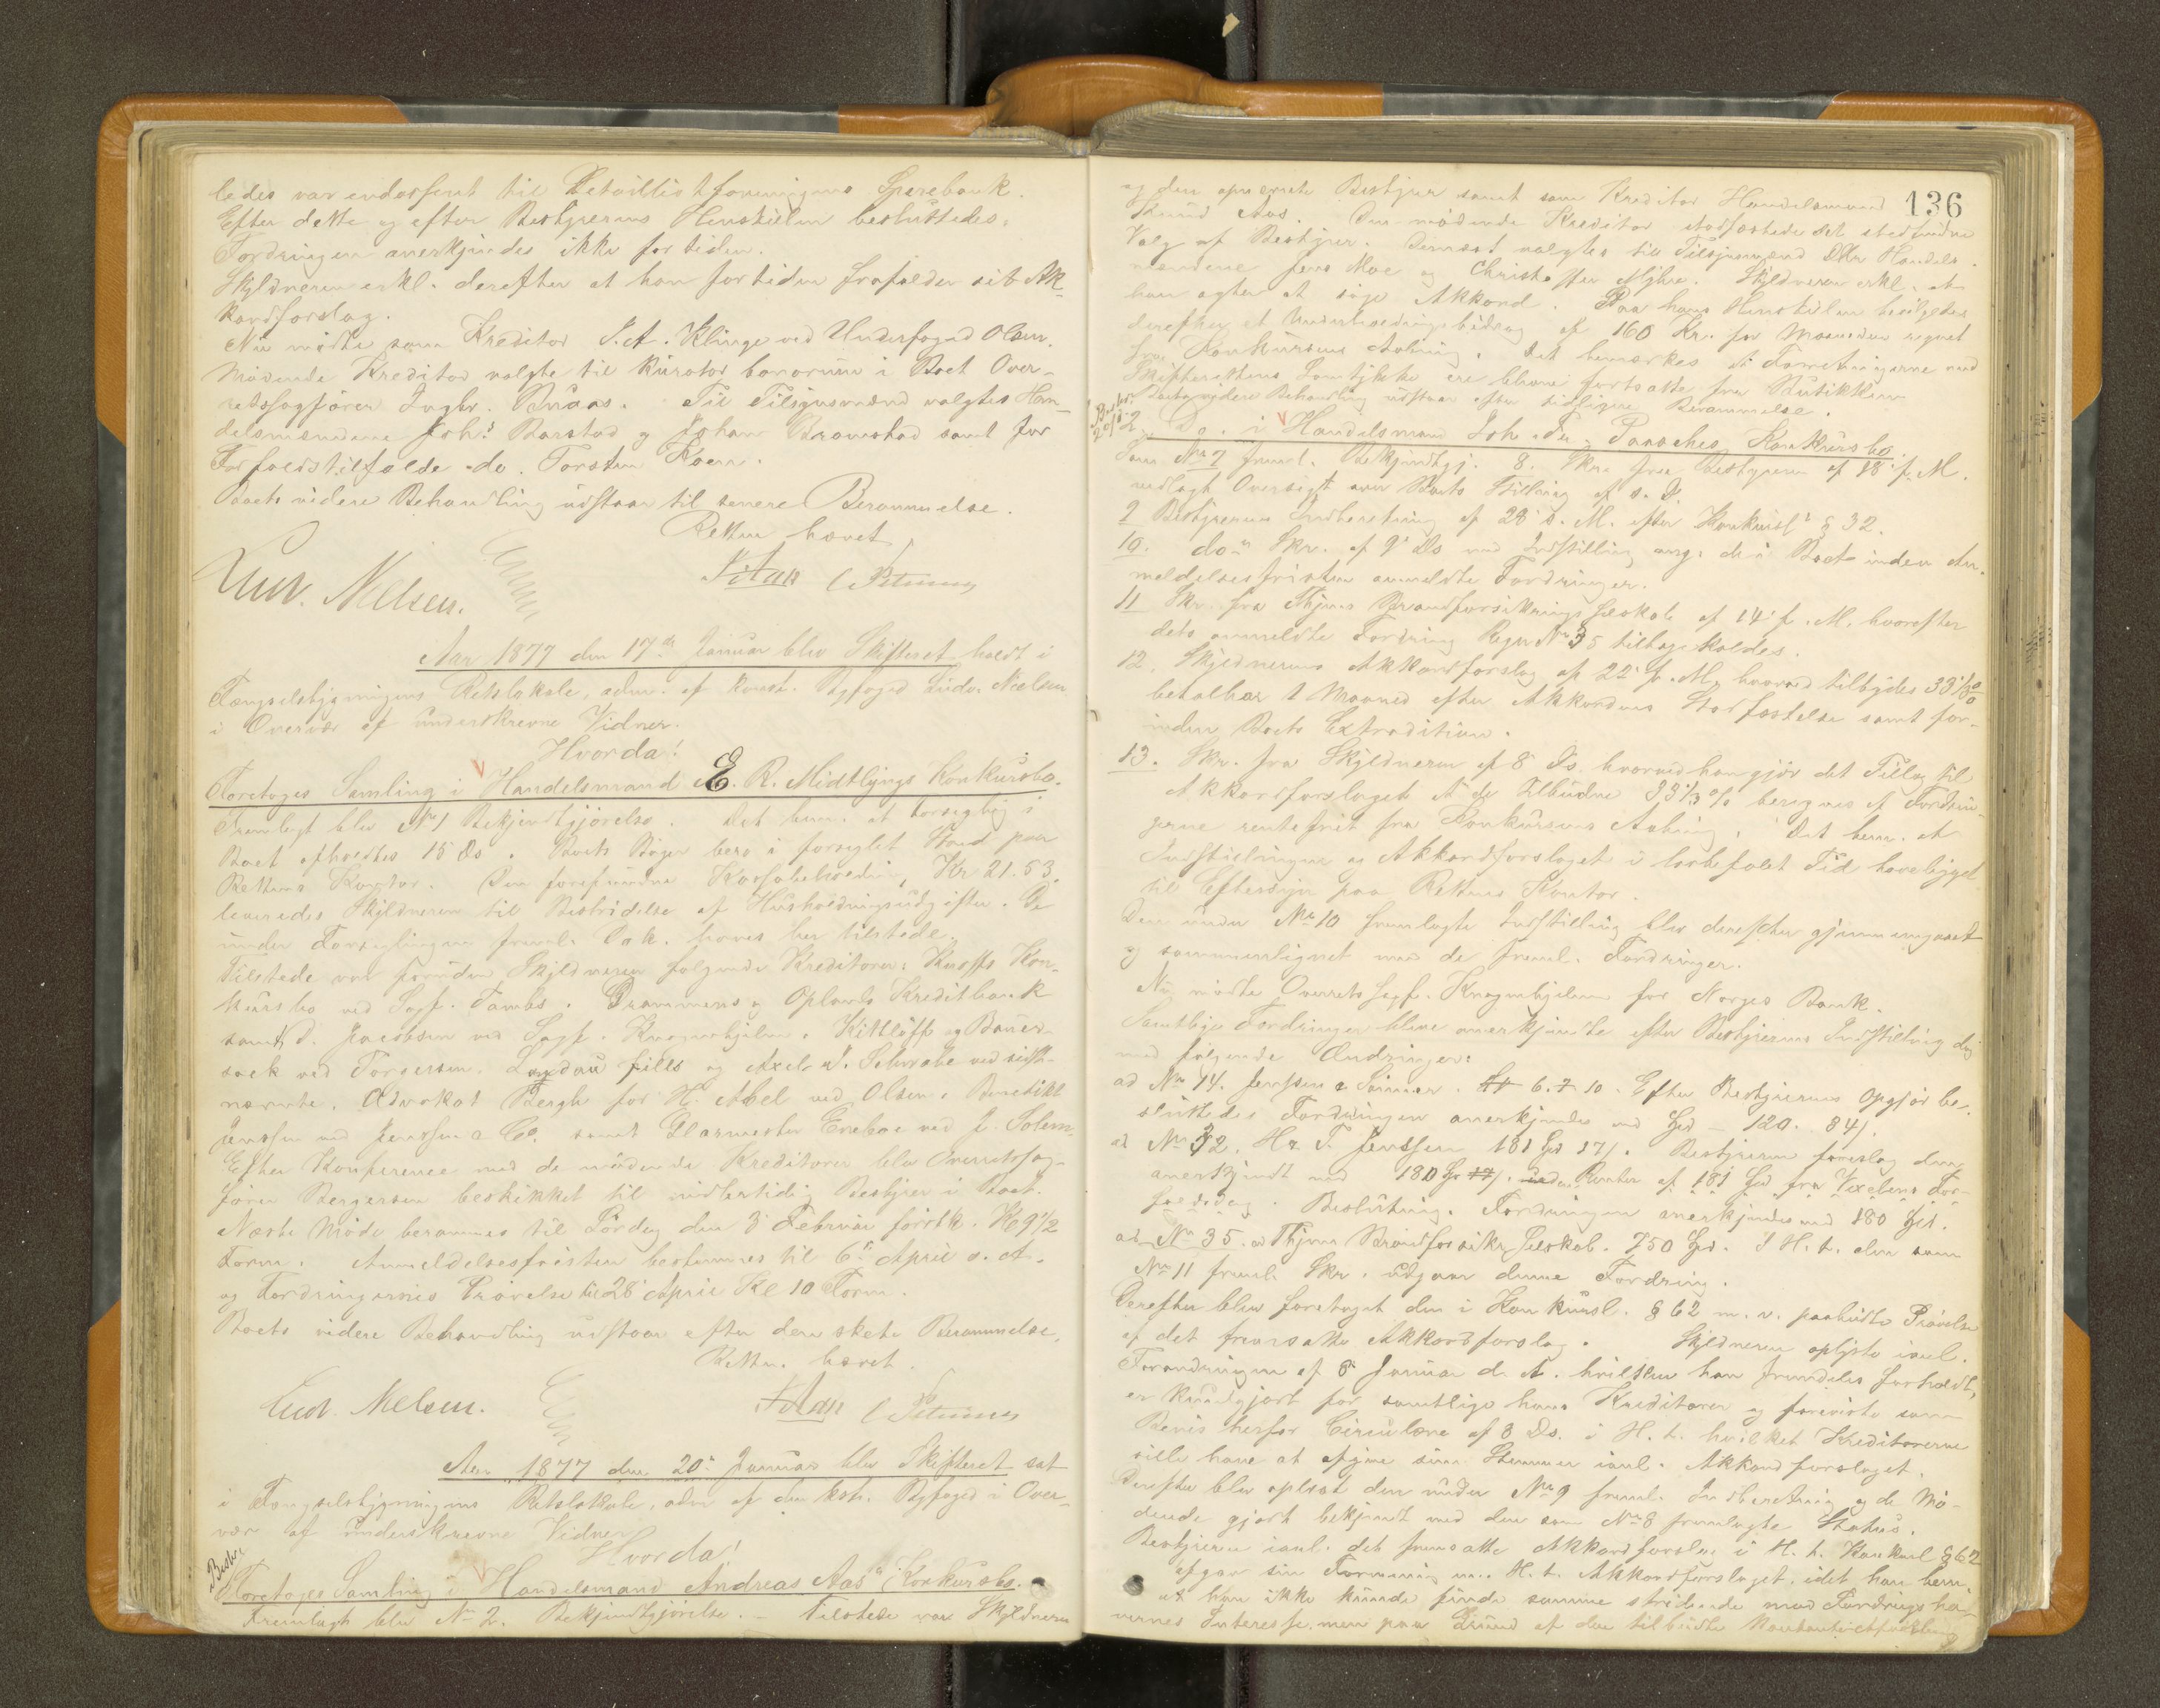 ledes var endosseret til Detaillistforeningens Sparebank.
Efter dette og efter Bestyrerens Henstillen besluttedes:
Fordringen anerkjendes ikke for tiden.
Skyldneren erkl. derefter at han for tiden frafalder sit Ak-
kordforslag.
Nu mødte som Kreditor S. A. Klinge ved Underfoged Olsen.
Mødende Kreditor valgte til Kurator bonorum i Boet Over-
retssagfører Ingbr. Buaas. Til Tilsynsmænd valgtes Han-
delsmændene Johs. Barstad og Johan Bramstad samt for
Forfaldstilfælde do. Torsten Roen.
Boets videre Behandling udstaar til senere Berammelse.
Retten hævet
Ludv. Nielsen.
Aar 1877 den 17de Januar blev Skifteret holdt i
Fængselsbygningens Retslokale, adm. af const. Byfoged Ludv. Nielsen
i Overvær af underskrevne Vidner.
Hvorda!
Foretoges Samling i Handelsmand E. R. Midtlyngs Konkursbo.
Fremlagt blev No 1 Bekjendtgjørelse. Det bem. at Forsegling i
Boet afholdtes 15 ds. Boets Bøger bero i forseglet Stand paa
Rettens Kontor. Den forefundne Kassabeholdning Kr 21.53.
leveredes Skyldneren til Bestridelse af Husholdningsudgifter. De
under Forseglingen freml. Dok. haves her tilstede.
Tilstede var foruden Skyldneren følgende Kreditorer: Knoffs Kon-
kursbo ved Sagf. Tambs. Drammens og Oplands Kreditbank
samt D. Jacobsen ved Sagf. Knagenhjelm. Kittlöff og Bauer-
sack ved Torgersen. Landau fills og Axel S. Schwabe ved sidst-
nævnte. Advokat Bergh for H. Abel ved Olsen. Benedikt
Jenssen ved Jenssen & Co. samt Glarmester Eneboe ved J. Solem.
Efter Konference med de mødende Kreditorer blev Overretssag-
fører Bergersen beskikket til midlertidig Bestyrer i Boet.
Næste Møde berammes til Lørdag den 3' Februar førstk. Kl 9 1/2
Form. Anmeldelsesfristen bestemmes til 6te April d. A.
og Fordringernes Prøvelse til 28' April Kl 10 Form.
Boets videre Behandling udstaar efter den skete Berammelse.
Retten hævet.
Ludv. Nielsen.
Aar 1877 den 20' Januar blev Skifteret sat
i Fængselsbygningens Retslokale, adm af den kst. Byfoged i Over-
vær af underskrevne Vidner
Hvorda!
Foretoges Samling i Handelsmand Andreas Aas' Konkursbo.
Fremlagt blev No 2. Bekjendtgjørelse. - Tilstede var Skyldneren
136
og den opnævnte Bestyrer samt som Kreditor Handelsmand
Knud Aas. Den mødende Kreditor stadfæstede det stedfundne
Valg af Bestyrer. Dernæst valgtes til Tilsynsmænd DHrr Handels-
mændene Jens Moe og Christoffer Myhre. Skyldneren erkl. at
han agter at søge Akkord. Paa hans Henstillen bevilgedes
derefter et Underholdningsbidrag af 160 Kr. for Maaneden regnet
fra Konkursens Aabning. Det bemærkes at Forretningerne med
Skifterettens Samtykke ere blevne fortsatte fra Butikken
Boets videre Behandling udstaar efter tidligere Berammelse.
Do. i Handelsmand Joh. Fr. Paasches Konkursbo.
Som No 7 freml. Bekjendtgj. 8. Skr. fra Bestyreren af 18' f. M.
vedlagt Oversigt over Boets Stilling af s. D.
9 Bestyrerens Indberetning af 28' s. M. efter Konkursl. § 32.
10. do- Skr. af 9' ds med Indstilling ang. de i Boet inden An-
meldelsesfristen anmeldte Fordringer.
11 Skr. fra Thjems Brandforsikrings Selskab af 14' f. M. hvorefter
dets anmeldte Fordring Regn No 35 tilbagekaldes.
12. Skyldnerens Akkordforslag af 22' f. M. hvorved tilbydes 33 1/3 %
betalbar 1 Maaned efter Akkordens Stadfæstelse samt for-
inden Boets Extradition.
13. Skr. fra Skyldneren af 8' ds. hvorved han gjør det Tillæg til
Akkordforslaget at de tilbudne 33 1/3 % beregnes af Fordrin-
gerne rentefrit fra Konkursens Aabning. Det bem. at
Indstillingen og Akkordforslaget i lovbefalet Tid have ligget
til Eftersyn paa Rettens Kontor.
Den under No 10 fremlagte Indstilling blev derefter gjennemgaaet
og sammenlignet med de freml. Fordringer.
Nu mødte Overretssagf. Knagenhjelm for Norges Bank.
Samtlige Fordringer bleve anerkjendte efter Bestyrerens Indstilling dog
med følgende Ændringer:
ad No 14. Jenssen & Sønner. 6. 7. 10. Efter Bestyrerens Opgjør be-
sluttedes Fordringen anerkjendt med Spd - 120. 84/.
ad No 32. Hr. F. Jenssen 181 Spd 17/. Bestyreren foreslog den
anerkjendt med 180 Spd 17/. med Renter af 181 Spd fra Vexelens For-
faldsdag. Beslutning. Fordringen anerkjendes med 180 Spd.
ad No 35. Thjems Brandforsikr. Selskab. 750 Spd. I H. t. den som
No 11 freml. Skr. udgaar denne Fordring.
Derefter blev foretaget den i Konkursl. § 62 m. v. paabudte Prøvelse
af det fremsatte Akkordforslag. Skyldneren oplyste isøl.
Forandringen af 8' Januar d. A. hvilken han fremdeles forholdt,
er kundgjort for samtlige hans Kreditorer og foreviste som
Bevis herfor Circulære af 8 ds. i H. t. hvilket Kreditorerne
ville have at afgive sine Stemmer isøl. Akkordforslaget.
Derefter blev oplæst den under No 9 freml. Indberetning og de Mø-
dende gjort bekjendt med den som No 8 fremlagte Status.
Bestyreren isøl. det fremsatte Akkordforslag i H. t. Konkursl § 62
afgav sin Formening m. H. t. Akkordforslaget, idet han bem.
at han ikke kunde finde samme stridende mod Fordringsha-
vernes Interesse, men paa Grund af den tilbudte